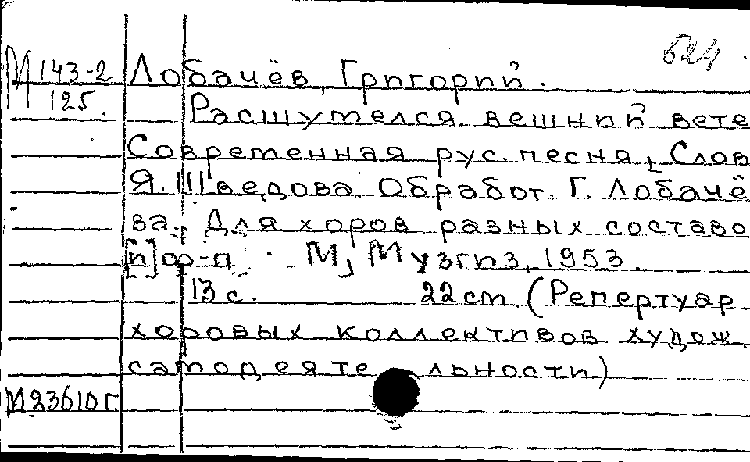 М 143-2
125.
624
Лобачёв, Григорий.
Расшумелся вешний вете
Современная рус. песня, Слов
Я. Шведова Обработ. Г. Лобачё
ва. Для хоров разных составо
[п] ф-п. М, Музгиз, 1953.
13 с. 22 cm (Репертуар
хоровых коллективов худож.
самодеятельности)
М 23610 г